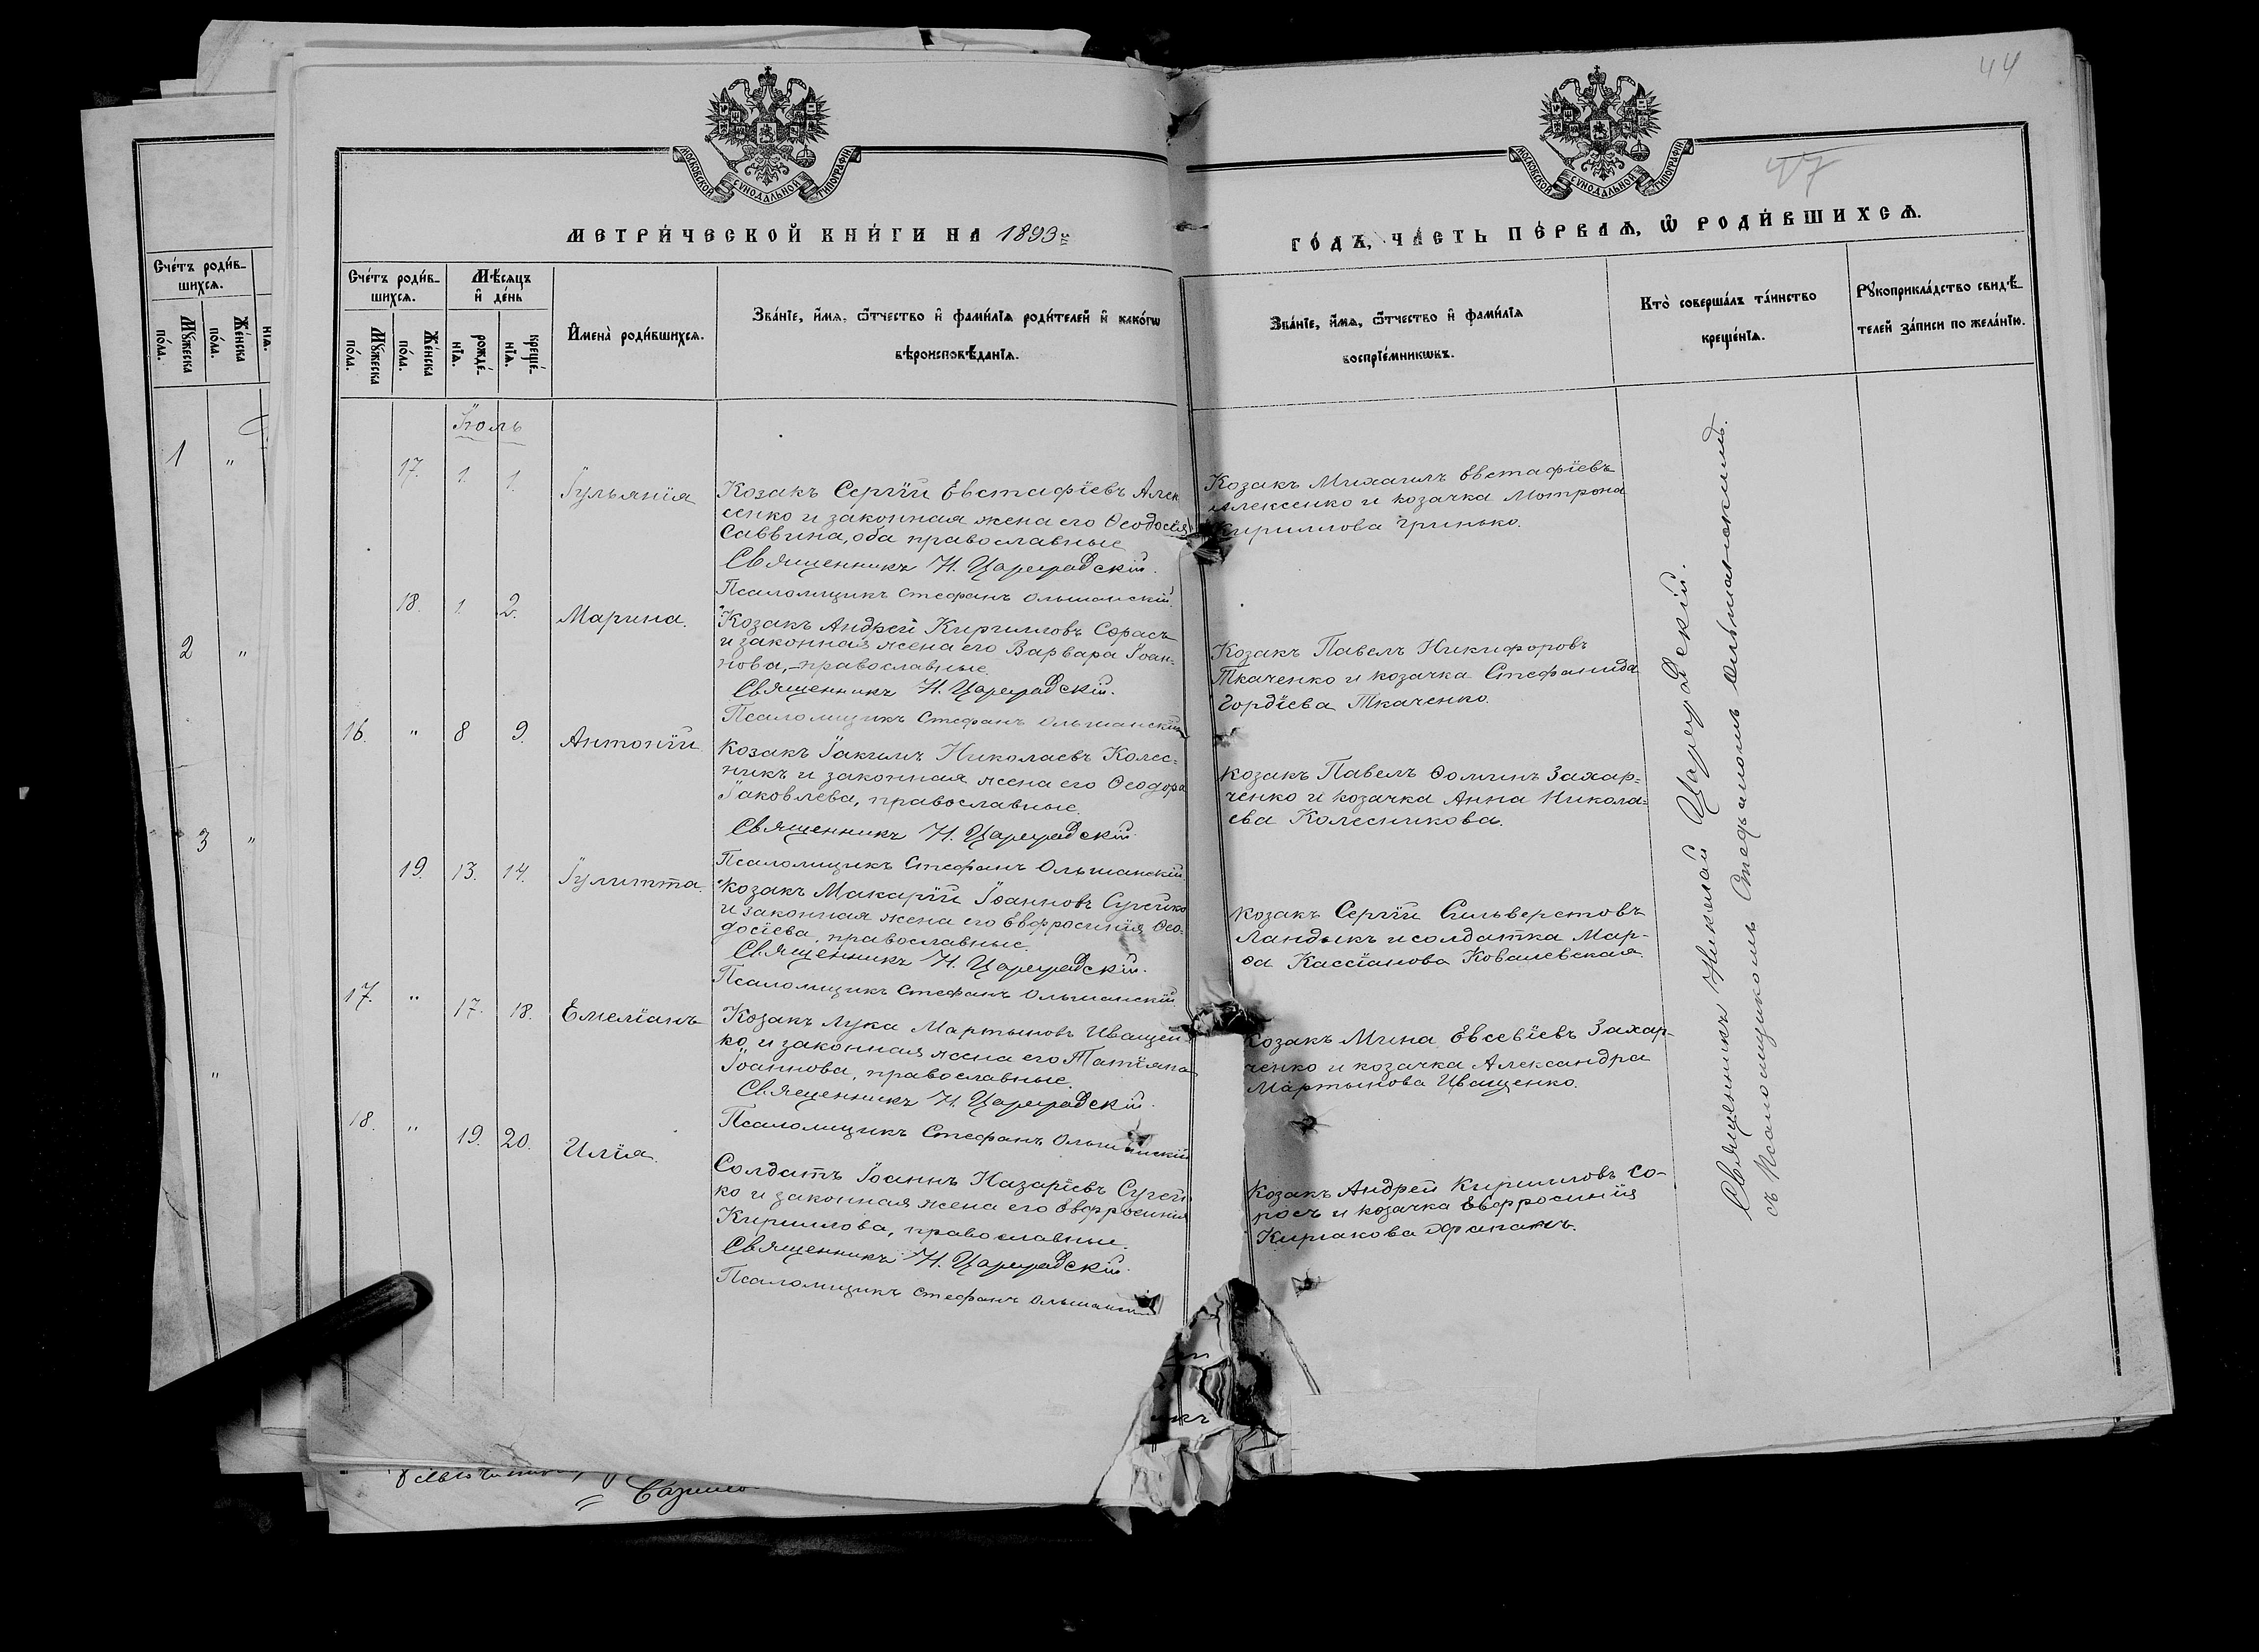 44
47
МОСКОВСКОЙ СѴНОДАЛЬНОЙ ТИПОГРАФІИ
МОСКОВСКОЙ СѴНОДАЛЬНОЙ ТИПОГРАФІИ
МЕТРИ́ЧЕСКОЙ КНИ́ГИ НА 1893
ГО́ДЪ, ЧА́СТЬ ПЕ́РВАѦ, Ѡ҆ РОДИ́ВШИХСѦ.
Счéтъ роди́в-
шихсѧ.
Мꙋ́жеска
по́ла.
Же́нска
по́ла.
нїѧ.
1 "
2 "
3 "
"
Счéтъ роди́в-
шихсѧ.
Мꙋ́жеска
по́ла.
Же́нска
по́ла.
Мѣ́сѧцъ
и҆ де́нь
рожде́-
нїѧ.
креще́-
нїѧ.
И҆мена̀ роди́вшихсѧ.
Зва́нїе, и҆́мѧ, ѻ҆́тчество и҆ фами́лїѧ роди́телей и҆ како́гѡ
вѣроисповѣ́данїѧ.
Зва́нїе, и҆́мѧ, ѻ҆́тчество и҆ фами́лїѧ
воспрїе́мникѡвъ.
Кто̀ соверша́лъ та́инство
креще́нїѧ.
Рꙋкоприкла́дство свидѣ́-
телей за́писи по жела́нїю.
Іюль
17. 1. 1. Іульянія
Козакъ Сергій Евстафіевъ Алек
сенко и законная жена его Ѳеодосія
Саввина, оба православные
Священникъ Н. Цареградскій.
Псаломщикъ Стефанъ Ольшанскій.
Козакъ Михаилъ Евстафіевъ
Алексенко и козачка Мотрона
Кириллова Гринько.
18. 1. 2. Марина.
Козакъ Андрей Кирилловъ Сорасъ
и законная жена его Варвара Іоан-
нова, православные.
Священникъ Н. Цареградскій.
Псаломщикъ Стефанъ Ольшанскій
Козакъ Павелъ Никифоровъ
Ткаченко и козачка Стефанида
Гордіева Ткаченко.
16. " 8 9. Антоній
Козакъ Іакимъ Николаевъ Колес-
никъ и законная жена его Ѳеодора
Іаковлева, православные.
Священникъ Н. Цареградскій
Псаломщикъ Стефанъ Ольшанскій.
Козакъ Павелъ Ѳоминъ Захар-
ченко и козачка Анна Никола-
ева Колесникова.
19. 13. 14. Іулитта.
Козакъ Макарій Іоанновъ Сугейко
и законная жена его Евфросинія Ѳео-
досіева, православные.
Священникъ Н. Цареградскій.
Псаломщикъ Стефанъ Ольшанскій
Козакъ Сергій Сильверстовъ
Ландыкъ и солдатка Мар-
ѳа Кассіанова Ковалевская.
17. " 17. 18. Емеліанъ
Козакъ Лука Мартыновъ Иващен-
ко и законная жена его Татіяна
Іоаннова, православные.
Священникъ Н. Цареградскій.
Псаломщикъ Стефанъ Ольшанскій
Козакъ Мина Евсевіевъ Захар-
ченко и козачка Александра
Мартынова Иващенко.
18. " 19. 20. Илія.
Солдатъ Іоаннъ Назаріевъ Сугей
ко и законная жена его Евфросинія
Кириллова, православные.
Священникъ Н. Цареградскій.
Псаломщикъ Стефанъ Ольшанскій
Козакъ Андрей Кирилловъ Со-
расъ и козачка Евфросинія
Киріакова
Священникъ Николай Цареградскій.
съ псаломщикомъ Стефаномъ Ольшанскимъ.